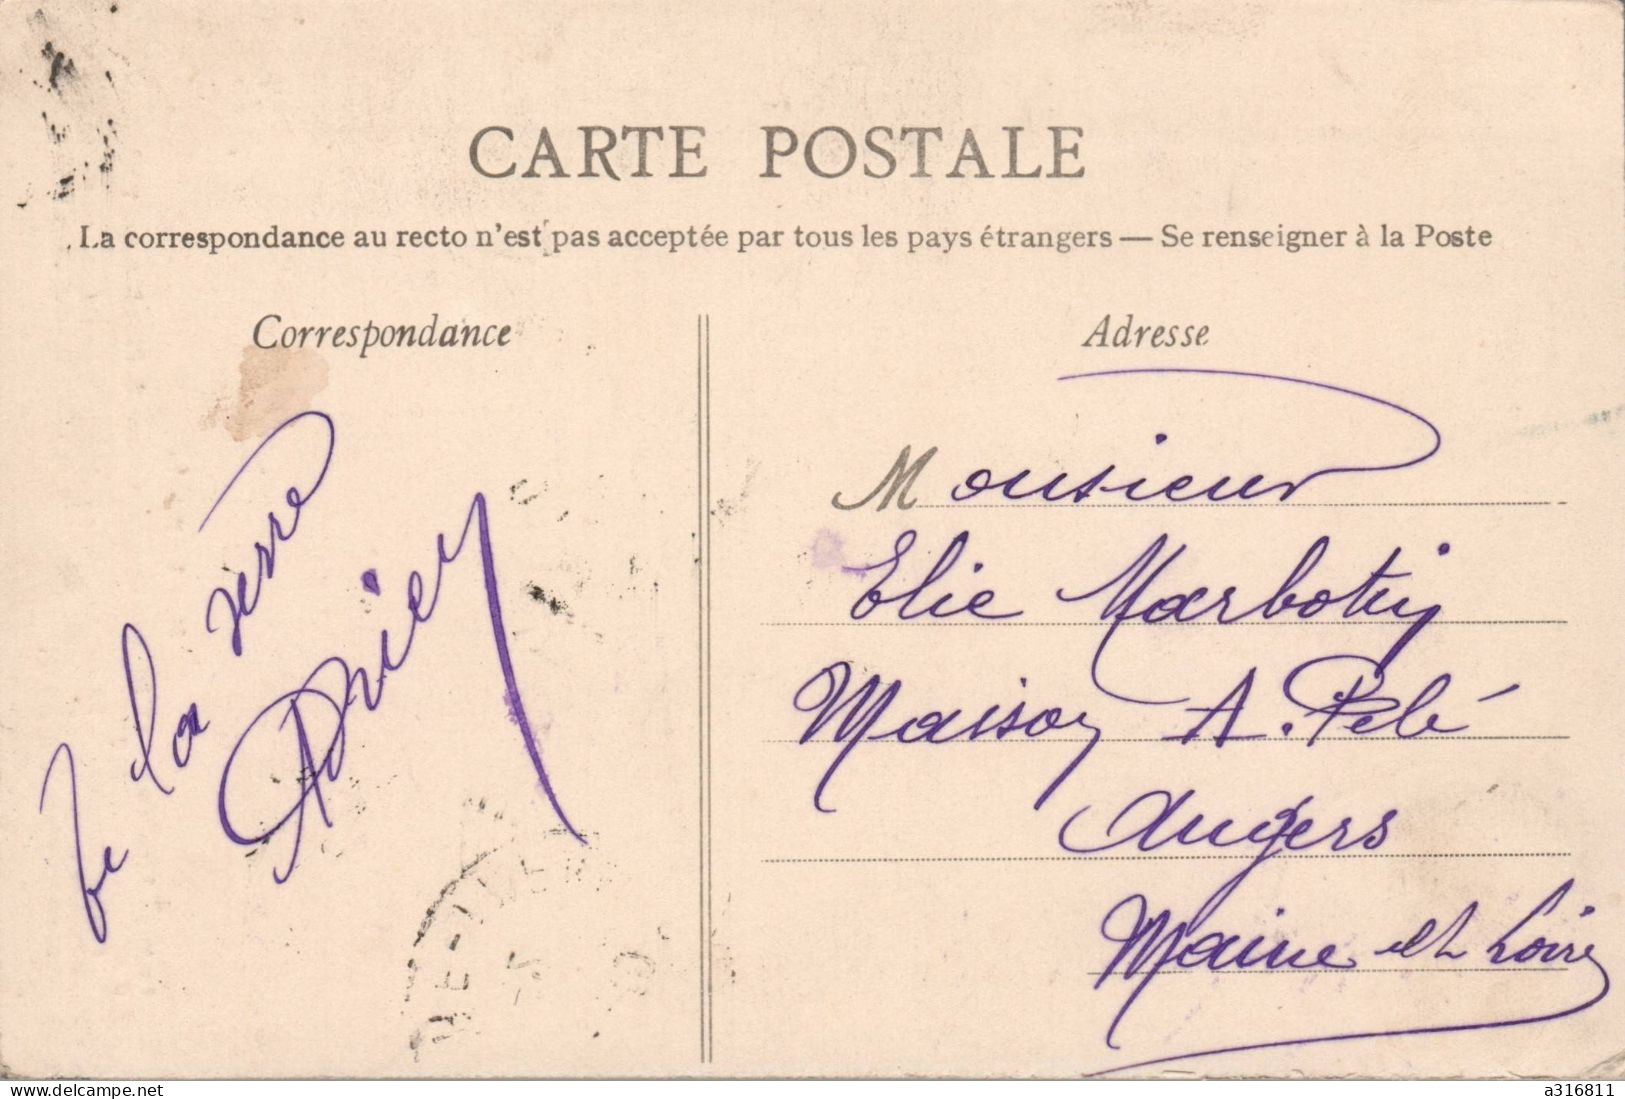 CARTE POSTALE
La correspondance au recto n'est pas acceptée par tous les pays étrangers — Se renseigner à la Poste
Correspondance
la
Adresse
Monsieur
Elie
Maison A. Pelé
Angers
Maine et Loire
www.delcampe.net
a316811